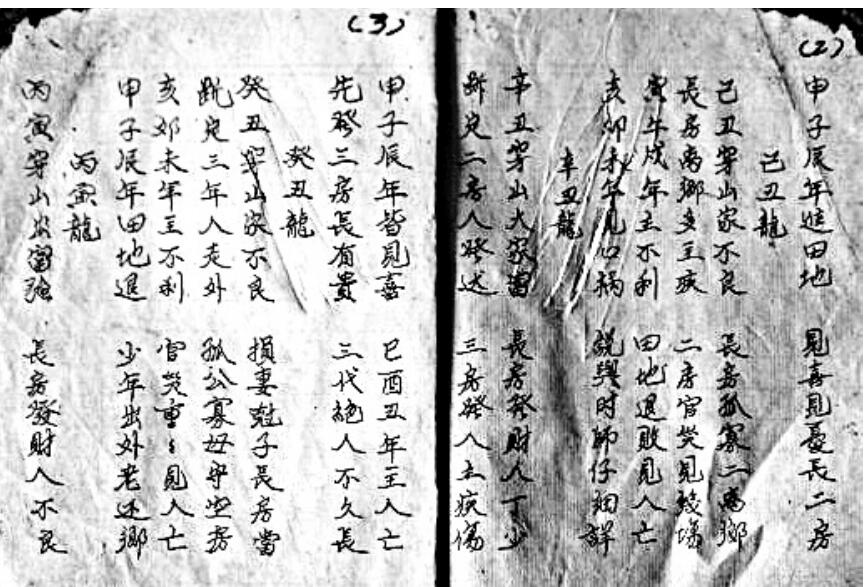 (2)
甲子辰年進田地 見喜見憂長二房
己丑龍
己丑穿山家不良 長房孤寡二离鄉
長房离鄉多主疾 二房官災見
寅午戌年主不利 田地退敗見人亡
亥卯未年見口禍 說與时師仔細詳
辛丑龍
辛丑穿山大家富 長房發財人丁少
斷定二房人發达 三房發人主疾傷
(3)
甲子辰年皆見喜 巳酉丑年主人亡
先發三房長有貴 三代絕人不久長
癸丑龍
癸丑穿山家不良 損妻尅子長房當
定三年人走外 孤公寡母守空房
亥卯未年主不利 官災重々見人亡
甲子辰年田地退 少年出外老还鄉
丙寅龍
丙寅穿山出富強 長房發財人不良